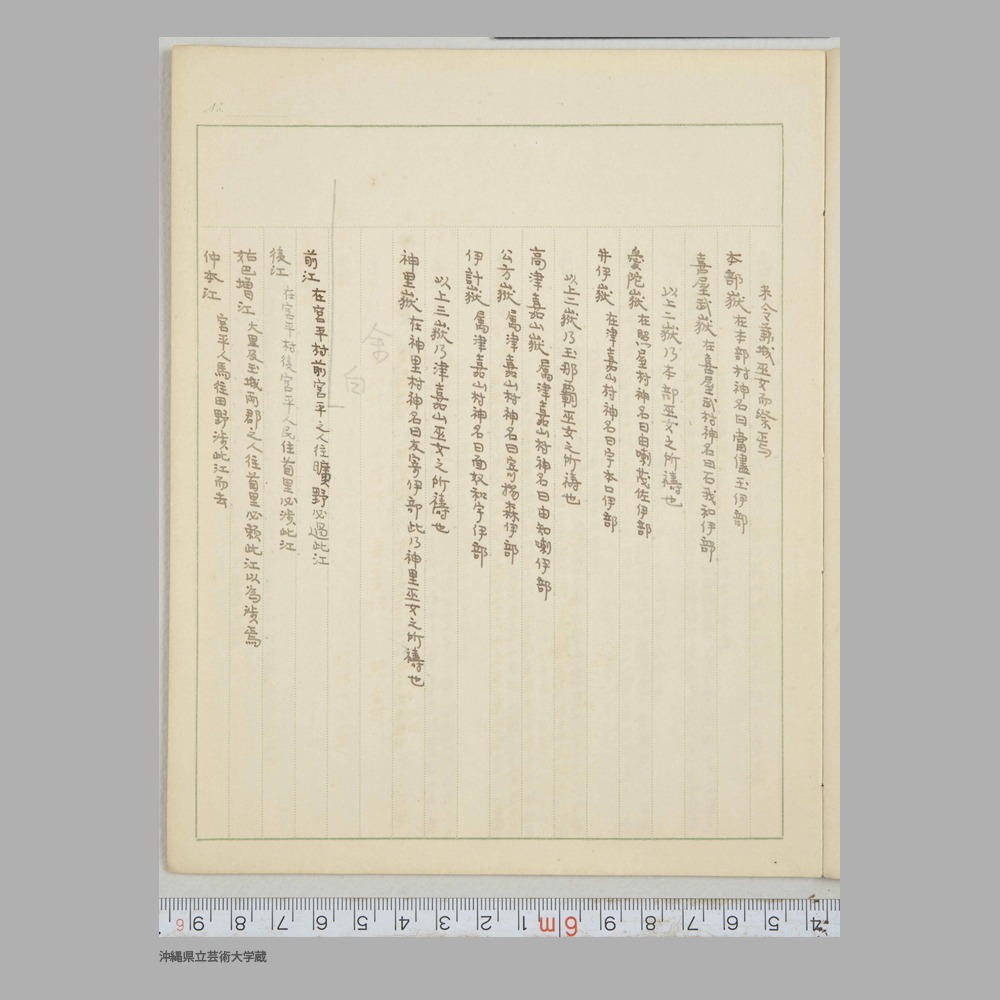 未令兼城巫女而祭焉
本部嶽 在本部村神名曰當儘玉伊部
喜屋武嶽 在喜屋武村神名曰石我和伊部
以上二嶽乃本部巫女之所禱也
愛陀嶽 在照屋村神名曰由喇茂佐伊部
井伊嶽 在津嘉山村神名曰宇本口伊部
以上二嶽乃玉那覇巫女之所禱也
高津嘉山嶽 属津嘉山村神名曰由知喇伊部
公方嶽 属津嘉山村神名曰寄揚森伊部
伊計嶽 属津嘉山村神名曰面奴和宇伊部
以上三嶽乃津嘉山巫女之所禱也
神里嶽 在神里村神名曰友寄伊部此乃神里巫女之所禱也
余白
前江 在宮平村前宮平之人往曠野必過此江
後江 在宮平村後宮平人民往首里必渉此江
姑巴増江 大里及玉城両郡之人往首里必頼此江以為渉焉
仲本江 宮平人馬往田野渉此江而去
No.
6 9 8 7 6 5 4 3 2 1 6m 9 8 7 6 5 4
沖縄県立芸術大学蔵